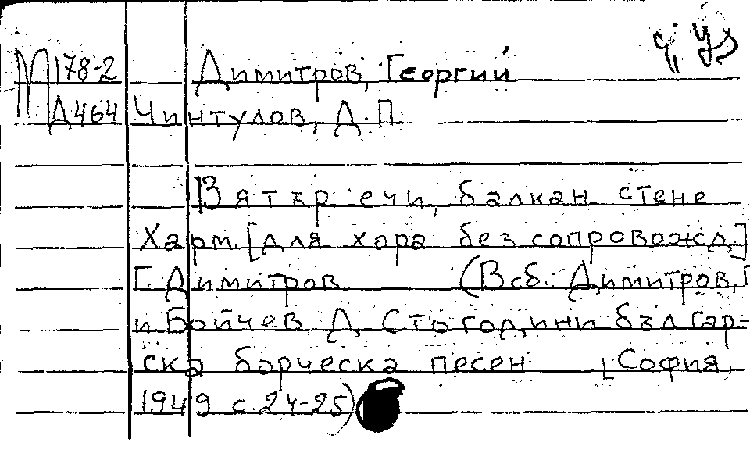 М178-2 Димитров, Георгий
Д464 Чинтулов, Д. П.
Вятър ечи, балкан стене
Харм. [для хора без сопровожд.]
Г. Димитров (В сб.: Димитров, Г.
и Бойчев Д. Сто години българ-
ска борческа песен [София,
1949 с. 24-25)